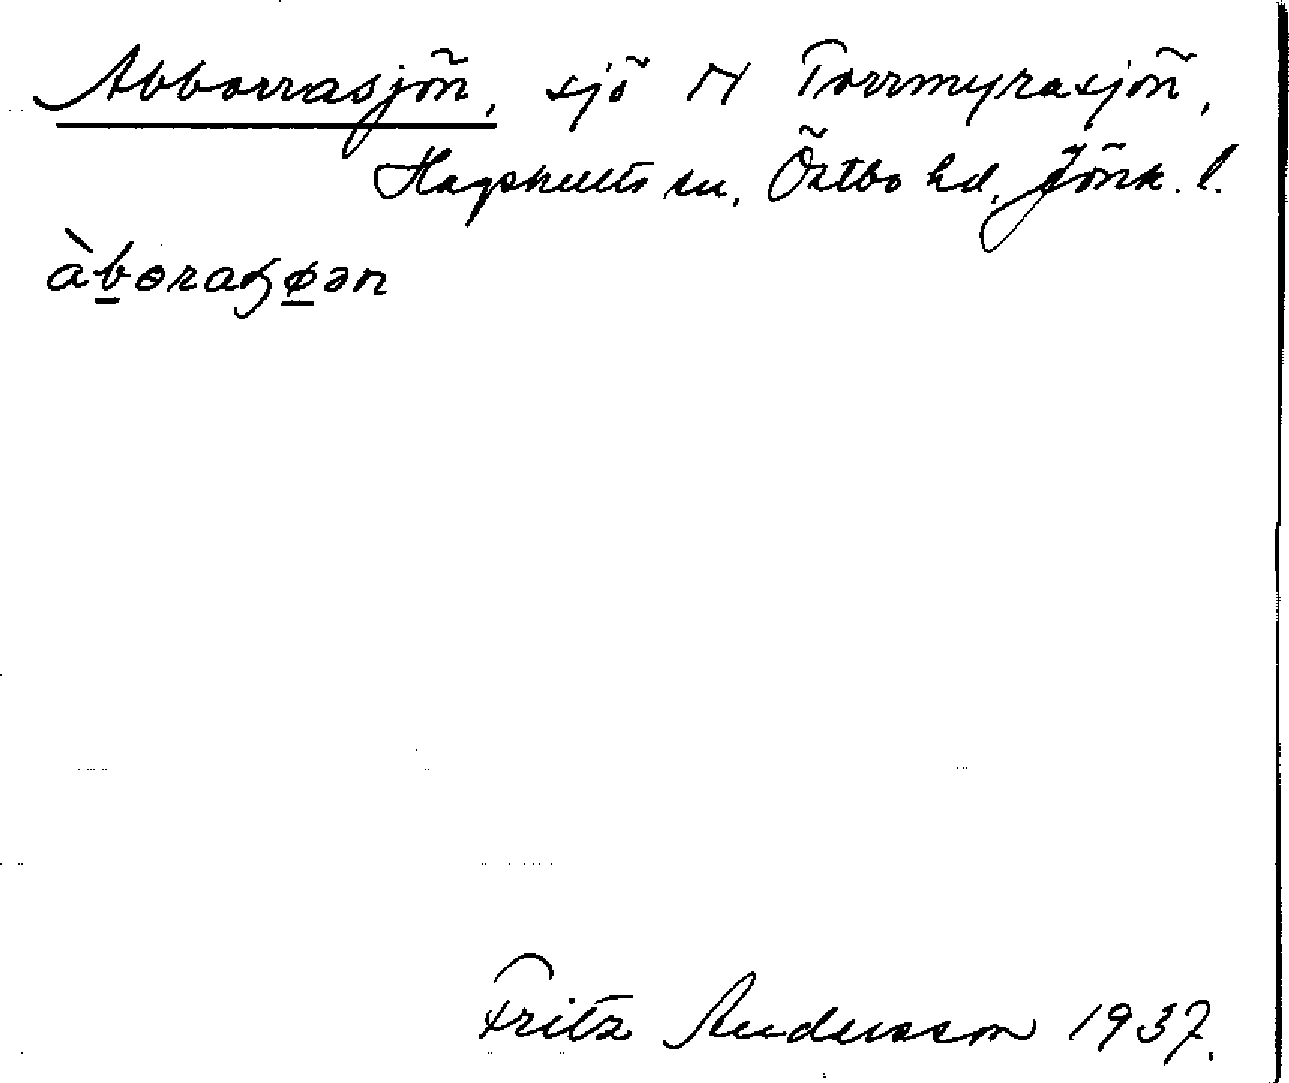 Abborrasjön, sjö N Torrmyrasjön,
Hagshults sn, Östbo hd, Jönk. l.
àbɵraɧøən
Fritz Andersson 1937.